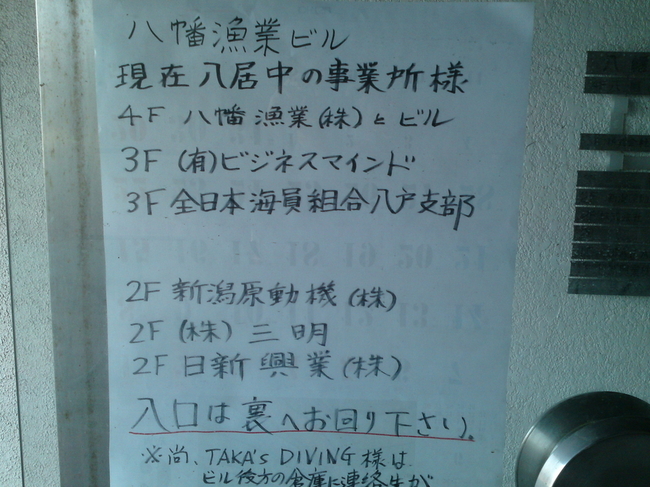 八幡漁業ビル
現在入居中の事業所様
4F 八幡漁業(株)と ビル
3F (有)ビジネスマインド
3F 全日本海員組合八戸支部
2F 新潟原動機(株)
2F (株) 三明
2F 日新興業(株)
入口は裏へお回り下さい。
※尚、TAKA's DIVING 様は
ビル後方の倉庫に連絡先が